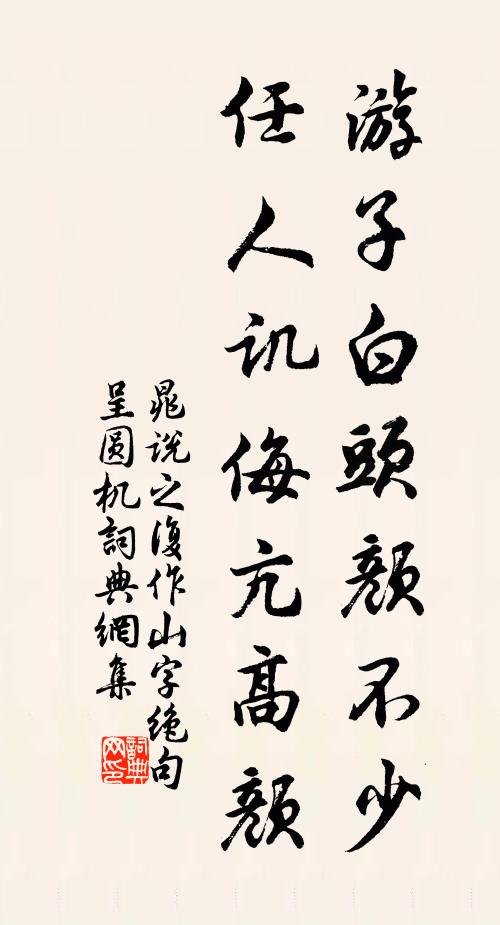 游子白頭顏不少
任人讥侮亢高顏
晁说之復作山字绝句
呈圆机詞典網集
詞典
网印